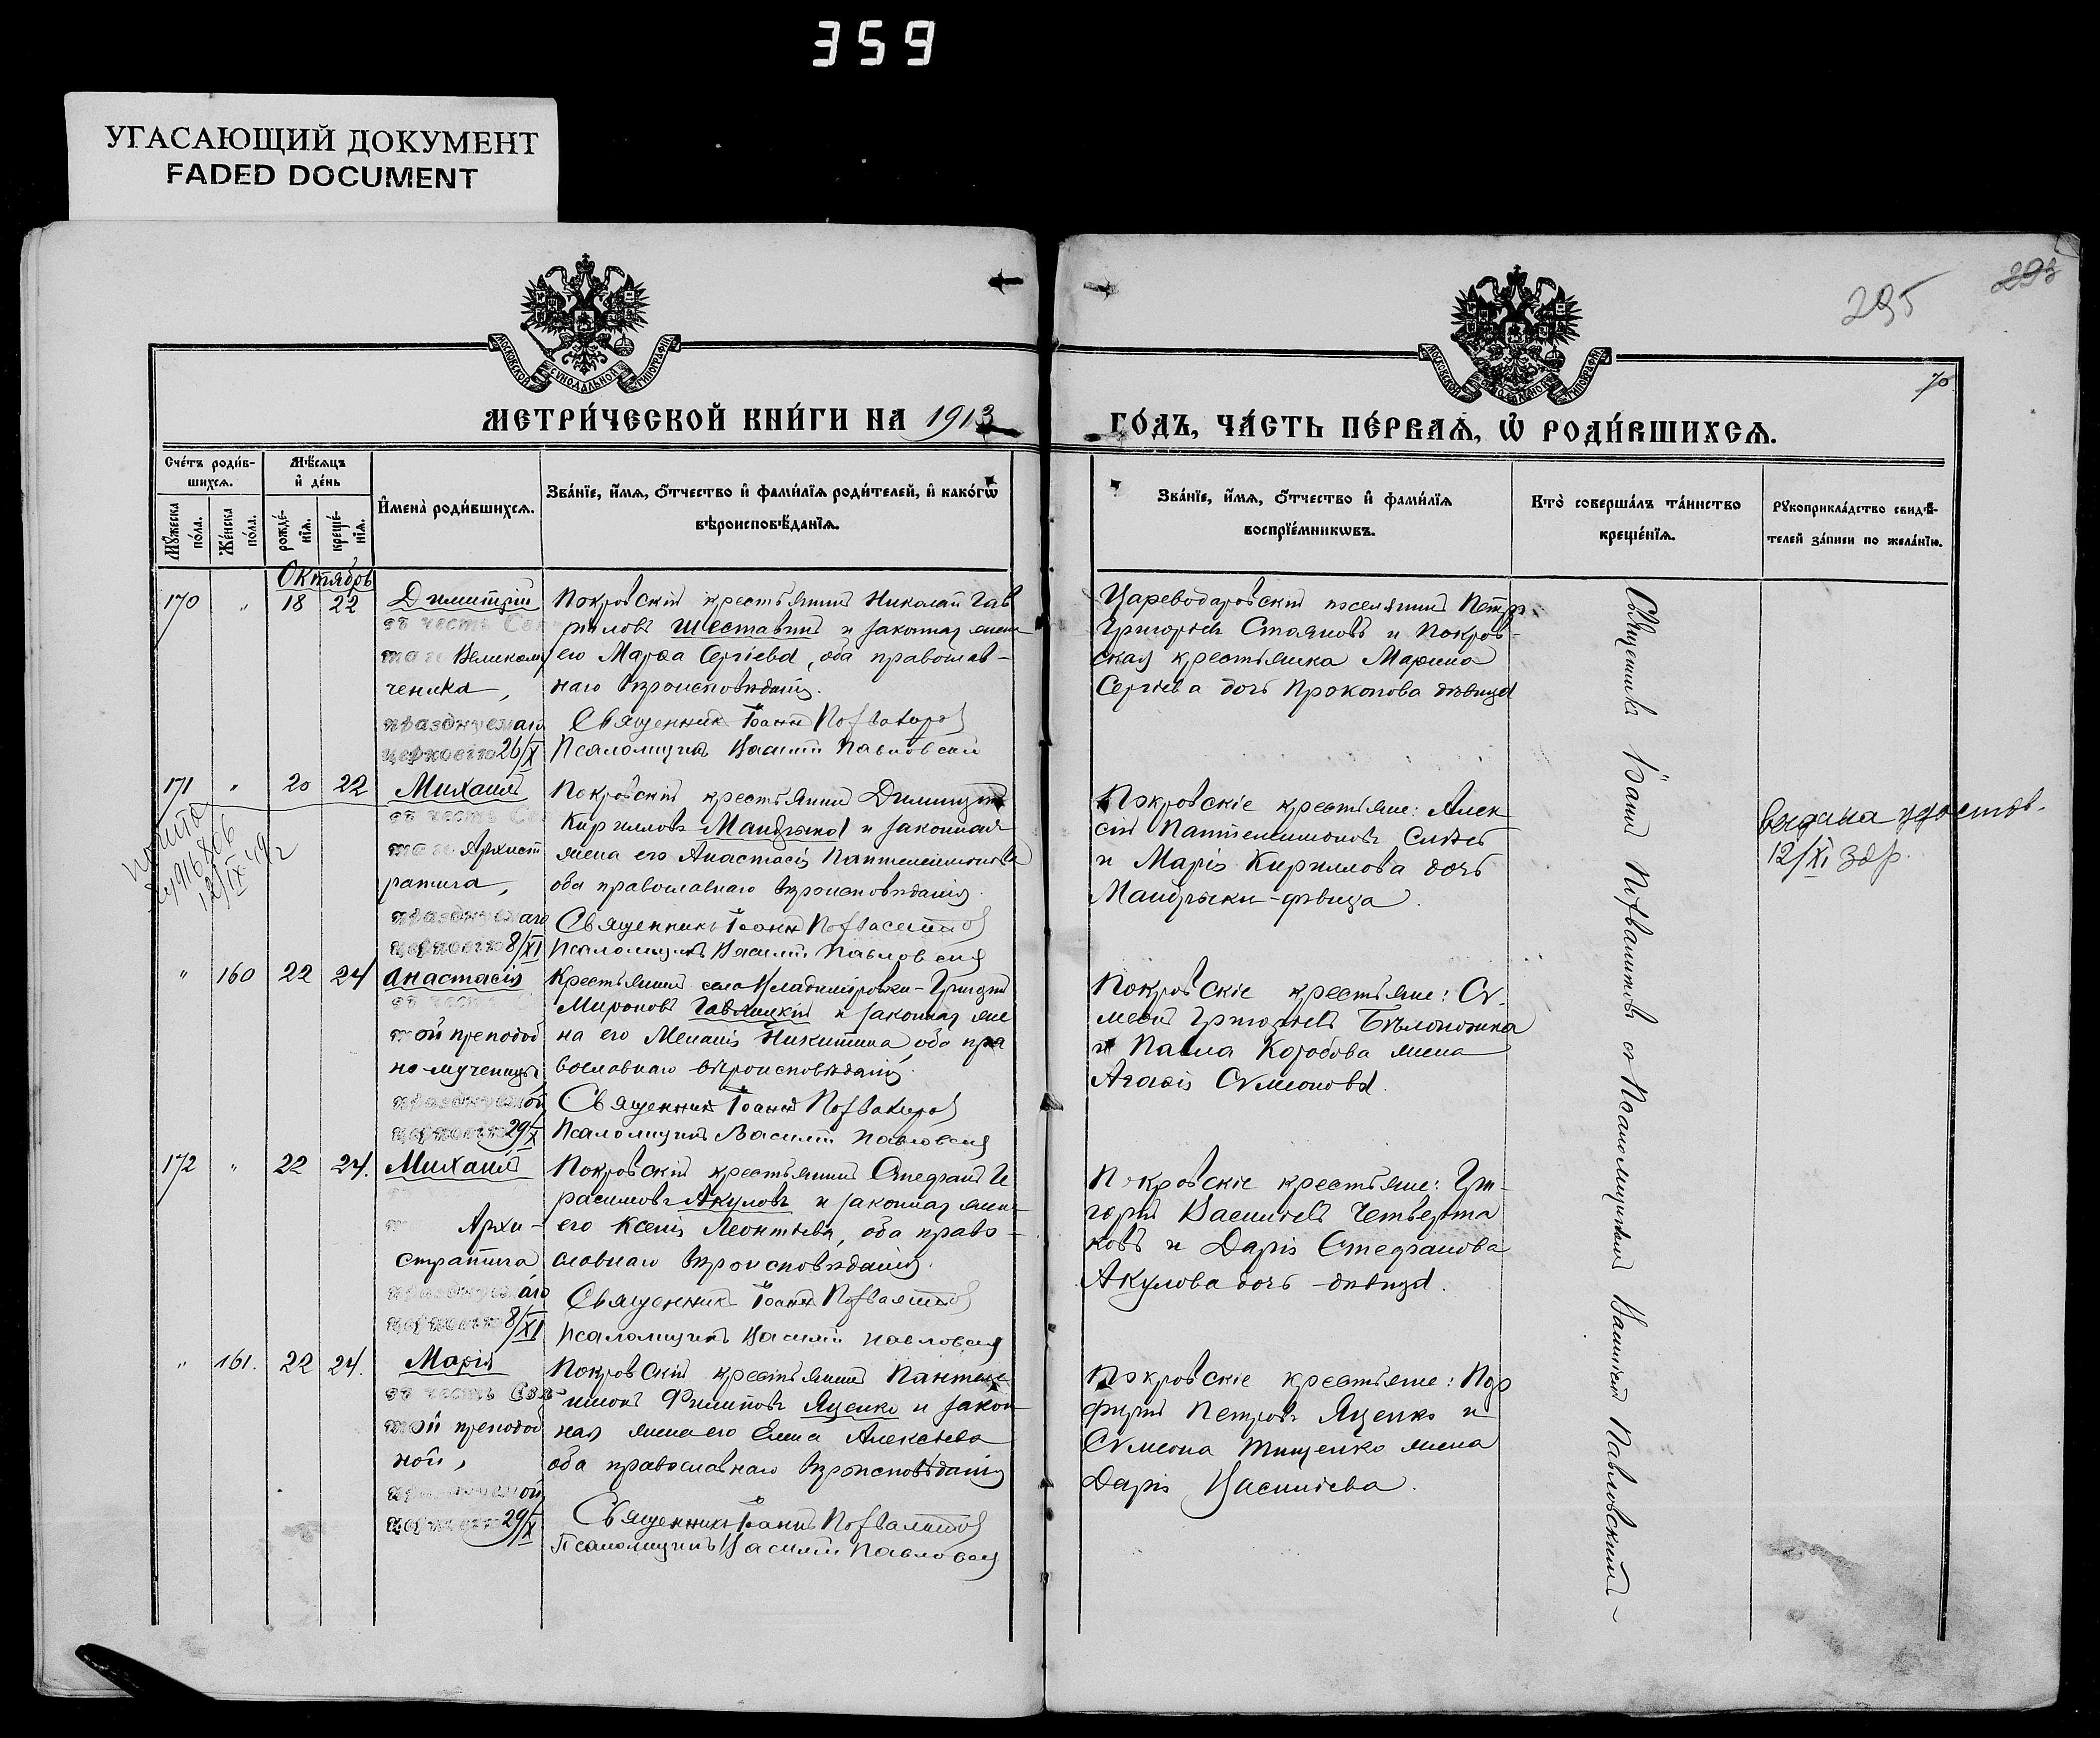 359
УГАСАЮЩИЙ ДОКУМЕНТ
FADED DOCUMENT
295
293
70
МОСКОВСКОЙ СѴНОДАЛЬНОЙ ТИПОГРАФІИ
МОСКОВСКОЙ СѴНОДАЛЬНОЙ ТИПОГРАФІИ
МЕТРИ́ЧЕСКОЙ КНИ́ГИ НА 1913
ГО́ДЪ, ЧА́СТЬ ПЕ́РВАѦ, Ѡ РОДИ́ВШИХСѦ.
Сче́тъ роди́в-
шихсѧ.
Мꙋ́жеска по́ла.
Же́нска по́ла.
Мѣ́сѧцъ
и҆ де́нь
рожде́-
нїѧ.
креще́-
нїѧ.
И҆мена̀ роди́вшихсѧ.
Зва́нїе, и҆́мѧ, ѻ҆́тчество и҆ фами́лїѧ роди́телей, и҆ како́гѡ
вѣроисповѣ́данїѧ.
Зва́нїе, и҆́мѧ, ѻ҆́тчество и҆ фами́лїѧ
воспрїе́мникѡвъ.
Кто̀ соверша́лъ та́инство
креще́нїѧ.
Рꙋкоприкла́дство свидѣ́-
телей за́писи по жела́нїю.
Октябрь
170 " 18 22 Димитрій
въ честь Свя-
таго Великому
ченика,
празднуемаго
церковію 26/X
Покровскій крестьянинъ Николай Гав
риловъ Шеставинъ и законная жена
его Марѳа Сергіева, оба православ-
наго вѣроисповѣданія.
Священникъ Іоаннъ
Псаломщикъ Василій Павловскій
Цареводаровскій поселянинъ Петръ
Григорьевъ Стояновъ и Покров-
ская крестьянка Марина
Сергіева дочь Прокопова дѣвица
171 " 20 22 Михаилъ
въ честь Свя
таго Архист
ратига,
празднуемаго
церковію 8/XI
Покровскій крестьянинъ Димитрій
Кирилловъ Мандрыка и законная
жена его Анастасія Пантелеимонова
оба православнаго вѣроисповѣданія.
Священникъ Іоаннъ
Псаломщикъ Василій Павловскій
Покровскіе крестьяне: Алек
сій Пантелеимоновъ
и Марія Кириллова дочь
Мандрыки-дѣвица.
выдана удостов.
12/XI
" 160 22 24 Анастасія
въ честь
той преподоб
но-мученицы
празднуемой
церковію 29/X
Крестьянинъ села Владиміровки-Григорій
Мироновъ Гавлицкій и законная же
на его Меланія Никитина, оба пра
вославнаго вѣроисповѣданія.
Священникъ Іоаннъ
Псаломщикъ Василій Павловскій
Покровскіе крестьяне: Сѵ-
меонъ Григорьевъ Бѣлоножка
и Павла Коробова жена
Агаѳія Сѵмеонова.
172 " 22 24. Михаилъ
Архи-
стратига
празднуемаго
церковію 8/XI
Покровскій крестьянинъ Стефанъ Ге
расимовъ Акуловъ и законная жена
его Ксенія Леонтьева, оба право-
славнаго вѣроисповѣданія.
Священникъ Іоаннъ
Псаломщикъ Василій Павловскій
Покровскіе крестьяне: Гри-
горій Васильевъ Четверта
ковъ и Дарія Стефанова
Акулова дочь-дѣвица.
" 161. 22 24. Марія
въ честь Свя-
той преподоб
ной,
празднуемой
церковію 29/X
Покровскій крестьянинъ Пантеле
имонъ Филипповъ Яценко и закон
ная жена его Елена Алексѣева
оба православнаго вѣроисповѣданія
Священникъ Іоаннъ
Псаломщикъ Василій Павловскій
Покровскіе крестьяне: Пор
фирій Петровъ Яценко и
Сѵмеона Тищенко жена
Дарія Васильева.
Священникъ Іоаннъ съ Псаломщикомъ Василіемъ Павловскимъ